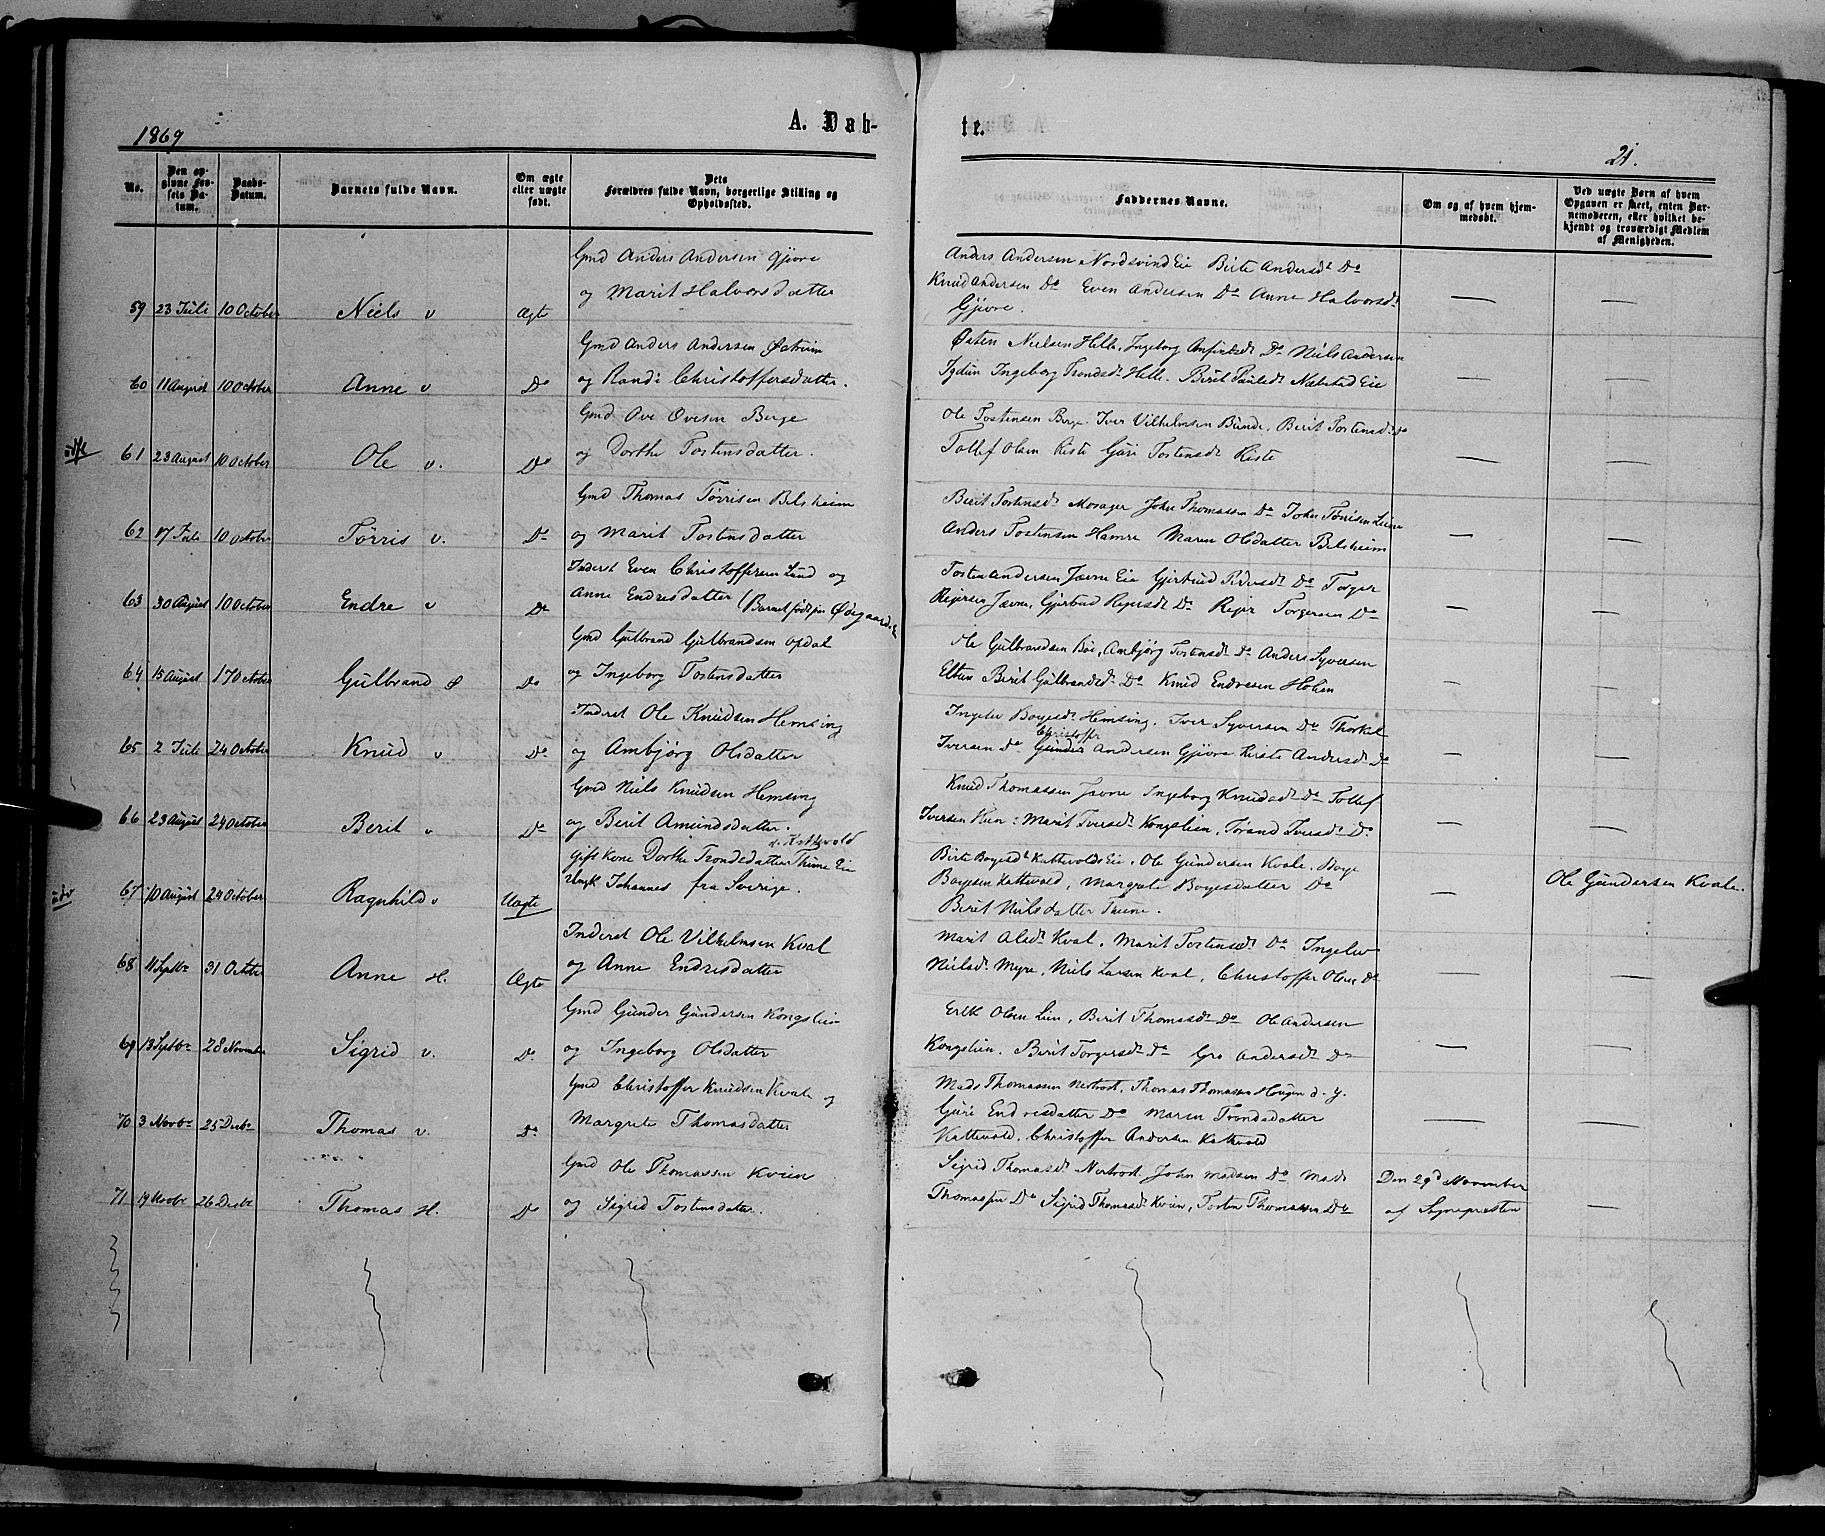 1869
A. Døbte.
21.
No.
Den opgivne Fødsels Datum.
Daabs-Datum.
Barnets fulde Navn.
Om ægte eller uægte født.
Dets Forældres fulde Navn, borgerlige Stilling og Opholdssted.
Faddernes Navne.
Om og af hvem hjemmedøbt.
Ved uægte Børn af hvem Opgaven er skeet, enten Barnemoderen, eller hvilket bekjendt og troværdigt Medlem af Menigheden.
Gmd Anders Andersen Gjøvre
og Marit Halvorsdatter
59 23 Juli 10 October Niels v Ægte
Anders Andersen Nordsvind Eie Birte Andersdt Do
Knud Andersen Do Even Andersen Do Anne Halvorsdt
Gjøvre. — —
Gmd Anders Andersen
60 11 August 10 October Anne v Do og Randi Christoffersdatter.
Østen Nielsen Helle, Ingeborg Do Niels Andersen
Ingeborg Trondsdt Helle. Berit Eie — —
Gmd Ove Ovesen Berge
61 23 August 10 October Ole v. Do og Dorthe Tostensdatter.
Ole Tostensen Berge Iver Vilhelmsen Bunde. Berit Tostensdt Do
Tollef Olsen Riste Guri Tostensdt Riste — —
Gmd Thomas Tørrisen Belsheim
62 17 Juli 10 October Tørris v. Do og Marit Tostensdatter
Berit Tostensdt Mosager John Thomassen Do John Tørrisen
Anders Tostensen Hamre Maren Olsdatter Belsheim — —
Inderst Even Christoffersen Lund og
63 30 August 10 October Endre v Do Anne Endresdatter (Barnet født paa Ødegaards E
Tosten Andersen Jævne Eie Gjertrud Pedersdt Do Torger
Rejersen Jævne, Gjertrud Rejersdt Do Rejer Torgersen Do — —
Gmd Gulbrand Gulbrandsen Opdal
64 15 August 17 October Gulbrand Ø Do og Ingeborg Tostensdatter
Ole Gulbrandsen Bøe, Ambjørg Tostensdt Do Anders Syversen
Elton Berit Gulbrandsdt Do Knud Endresen Hohen — —
Inderst Ole Knudsen Hemsing
65 2 Juli 24 October Knud v Do og Ambjørg Olsdatter
Ingelev Boyesdt Hemsing. Iver Syversen Do Thorkel
Christoffer
Iversen Do Gunder Andersen Gjøvre Kirsti Andersdt Do — —
Gmd Niels Knudsen Hemsing
66 23 August 24 October Berit v Do og Berit Amundsdatter.
Knud Thomassen Jævne Ingeborg Knudsdt Do Tollef
Iversen Marit Iversdt Kongslien, Jørand Iversdt Do — —
Kattevold
67 10 August 24 October Ragnhild v Uægte
Gift Kone Dorthe Trondsdatter Thune Eie
Ungk Johannes fra Sverige.
Birte Boyesdt Kattevolds Eie. Ole Gundersen Kvale. Boye
Boyesen Kattevold, Margrete Boyesdatter Do
Berit Nilsdatter Thune. — Ole Gundersen Kvale.
Inderst Ole Vilhelmsen Kval
68 11 Septbr 31 October Anne H. Ægte og Anne Endresdatter
Marit Alsdt Kval. Marit Tostensdt Do Ingelev
Nielsdt Myre, Niels Larsen Kval, Christoffer Olsen Do — —
Gmd Gunder Gundersen Kongslien
69 13 Septbr 28 November Sigrid v. Do og Ingeborg Olsdatter
Erik Olsen Lien, Berit Thomasdt Do Ole Andersen
Kongslien. Berit Torgersdt Do Gro Andersdt Do — —
Gmd Christoffer Knudsen Kvale og
70 3 Novbr 25 Decbr Thomas v. Do Margrete Thomasdatter
Mads Thomassen Nertrost, Thomas Thomassen Hougen d. y.
Guri Endresdatter Do Maren Trondsdatter
Kattevold. Christoffer Andersen Kattevold — —
Gmd Ole Thomassen Kvien
71 19 Novbr 26 Decbr Thomas H. Do og Sigrid Tostensdatter.
Sigrid Thomasdt Nertrost John Madsen Do Mads
Thomassen Do Sigrid Thomasdt Kvien, Tosten Thomassen Do
Den 29d November
af Sognepresten —